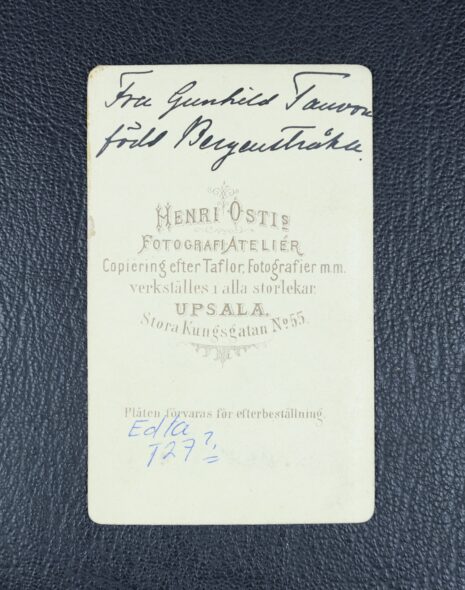 Fru Gunhild Tauvon
född Bergenstråhle.
HENRI OSTIS
FOTOGRAFIATELIÉR
Copiering efter Taflor, Fotografier m.m.
verkställes i alla storlekar.
UPSALA.
Stora Kungsgatan No 55.
Plåten förvaras för efterbeställning.
Edla
T27?